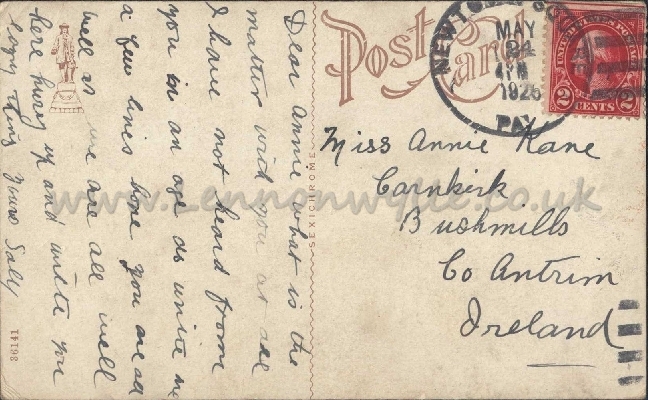 Post Card
NEWTOWN SQ.
MAY
24
4 PM
1925
PA.
UNITED STATES POSTAGE
2 CENTS 2
Miss Annie Kane
Carnkirk
Bushmills
Co Antrim
Ireland
SEXICHROME
Dear Annie what is the
matter with you at all
I have not heard from
you in an age do write me
a few lines hope you are all
well as we are all well
here hurry up and write you
lazy thing yours Sally
36141
www.Lennonwylie.co.uk